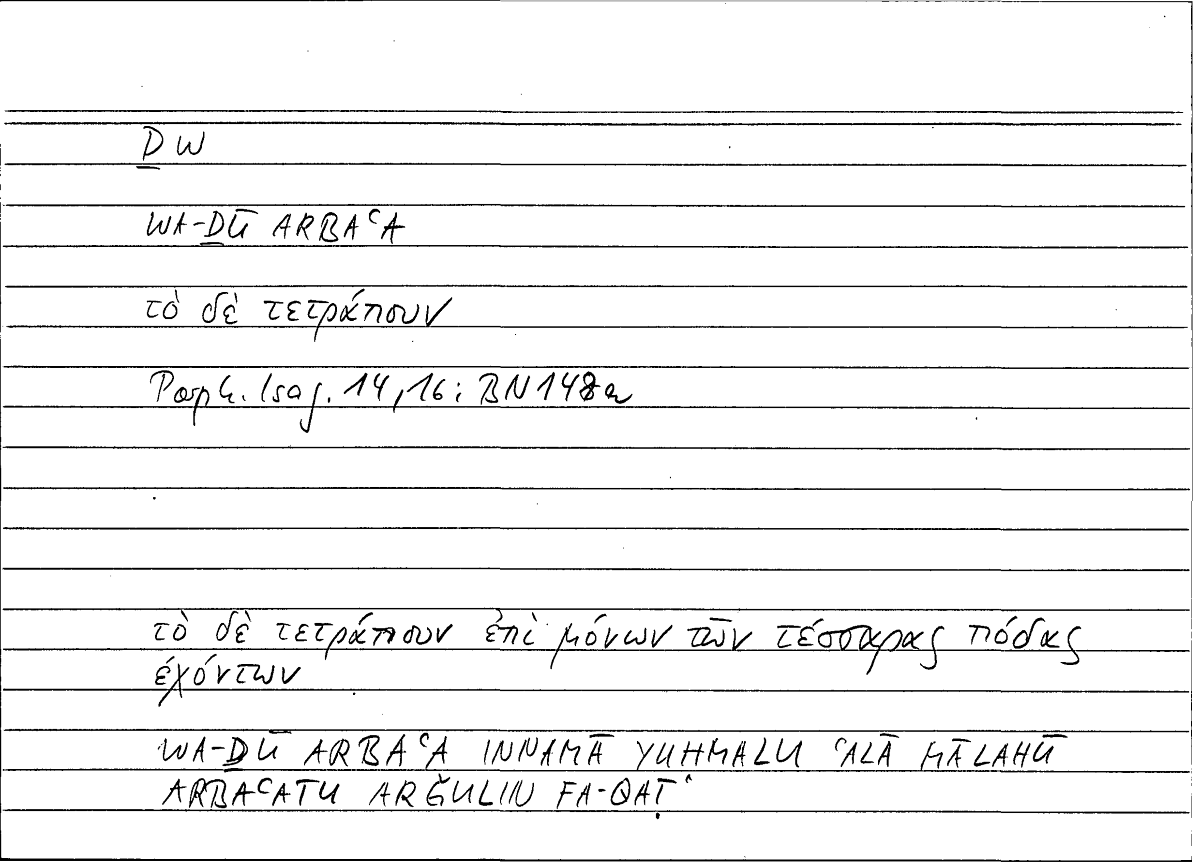 Ḏ W
WA-ḎŪ ARBAʿA
τὸ δὲ τετράπουν
Porph. Isag. 14,16; BN 148a
τὸ δὲ τετράπουν ἐπὶ μόνων τῶν τέσσαρας πόδας
ἐχόντων
WA-ḎŪ ARBAʿA INNAMĀ YUHMALU ʿALĀ MĀLAHŪ
ARBAʿATU ARǦULIN FA-QAṬ